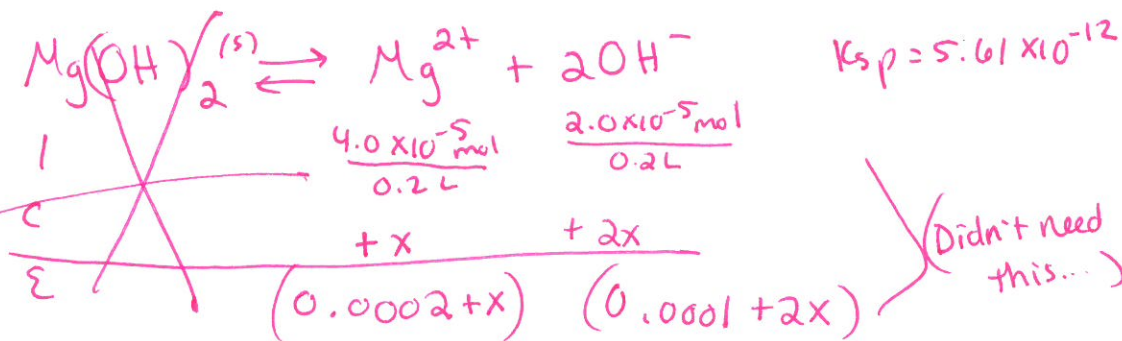 Mg(OH)₂ (s) ⇌ Mg²⁺ + 2OH⁻ Ksp = 5.61 x10⁻¹²
I 4.0 x10⁻⁵ mol / 0.2 L 2.0 x10⁻⁵ mol / 0.2 L
C + x + 2x
E (0.0002 + x) (0.0001 + 2x)
(Didn't need
this...)